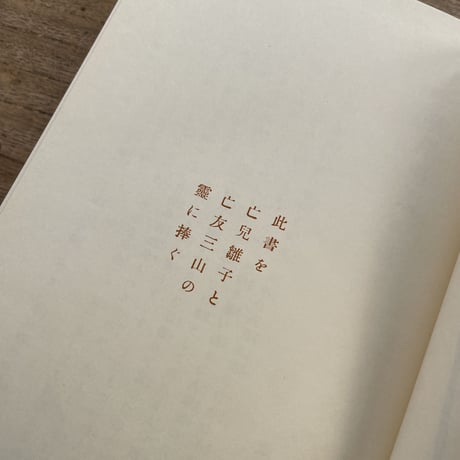 此書を
亡兒雛子と
亡友三山の
靈に捧ぐ